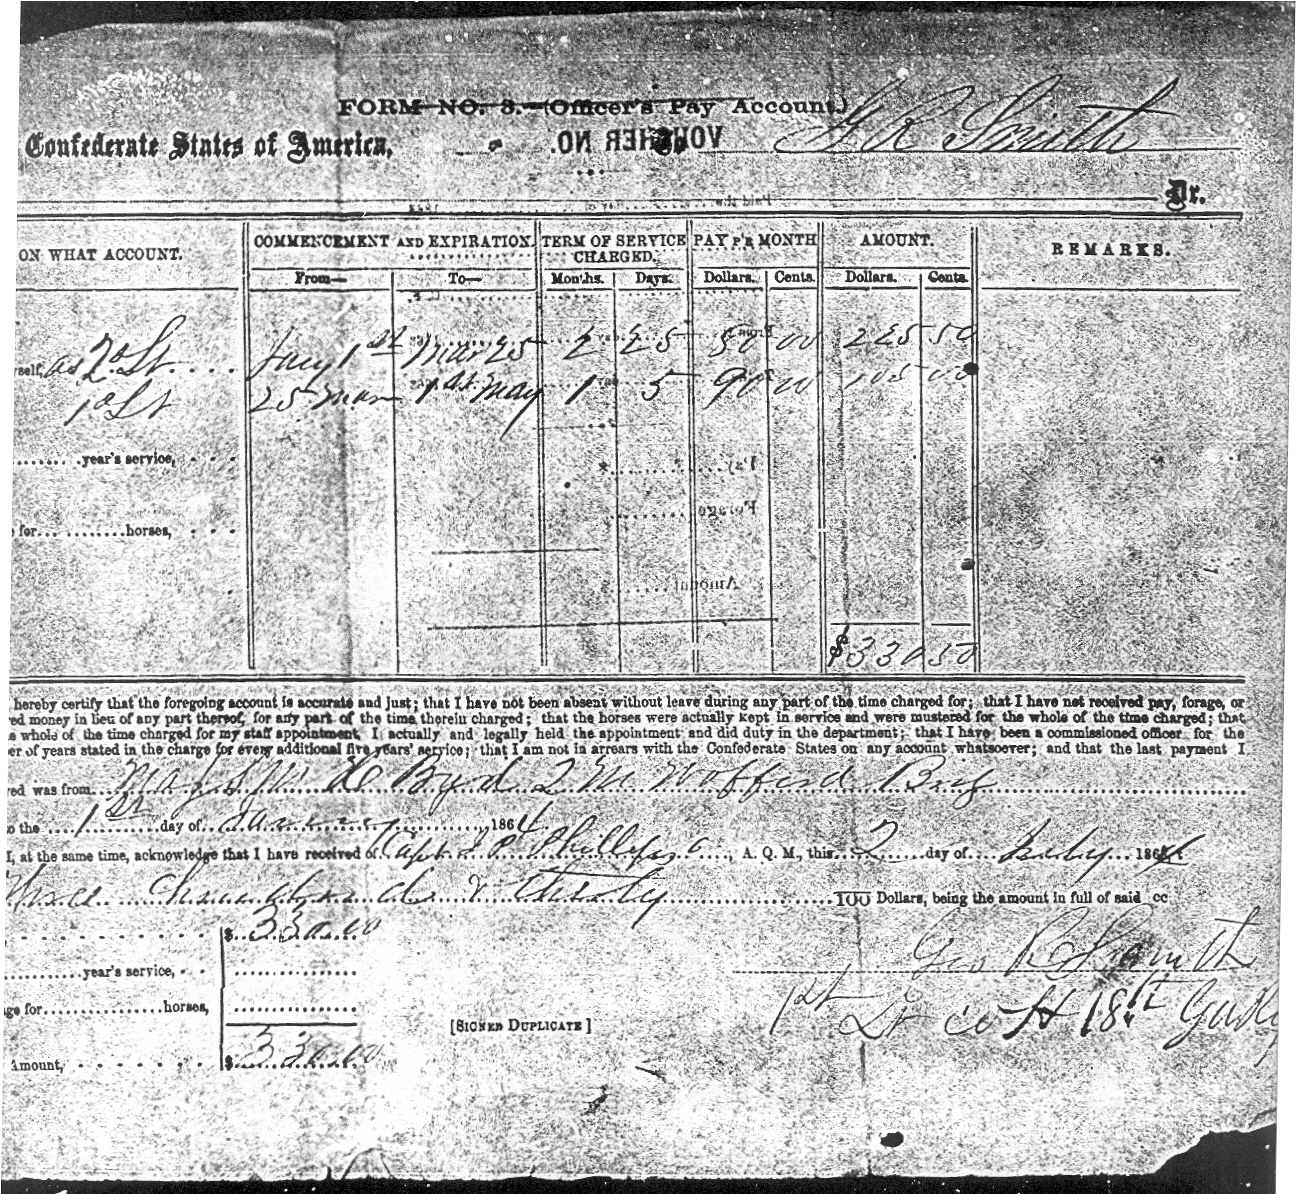 FORM NO. 3.—(Officer's Pay Account.)
Confederate States of America,
VOUCHER NO.
G R Smith
Dr.
ON WHAT ACCOUNT.
COMMENCEMENT AND EXPIRATION.
TERM OF SERVICE CHARGED.
PAY P'R MONTH
AMOUNT.
REMARKS.
From— To— Months. Days. Dollars. Cents. Dollars. Cents.
self, as 2d Lt. Jany 1st Mar 25 2 25 80 00 225 50
1st Lt 25 Mar 1st May 1 5 90 00 105 00
year's service,
for horses,
Pay
Forage
Amount
$330 50
hereby certify that the foregoing account is accurate and just; that I have not been absent without leave during any part of the time charged for; that I have not received pay, forage, or
ed money in lieu of any part thereof, for any part of the time therein charged; that the horses were actually kept in service and were mustered for the whole of the time charged; that
e whole of the time charged for my staff appointment, I actually and legally held the appointment and did duty in the department; that I have been a commissioned officer for the
er of years stated in the charge for every additional five years' service; that I am not in arrears with the Confederate States on any account whatsoever; and that the last payment I
ed was from Maj S M H Byrd Q M Wofford Brig
o the 1st day of January 1864
I, at the same time, acknowledge that I have received of Capt J P Phillips, A. Q. M., this 2 day of 1864
Three hundred & thirty 100 Dollars, being the amount in full of said cc
$ 330.00
Geo R Smith
year's service,
1st Lt Co H 18th
ge for horses,
[SIGNED DUPLICATE]
Amount, $ 330.00